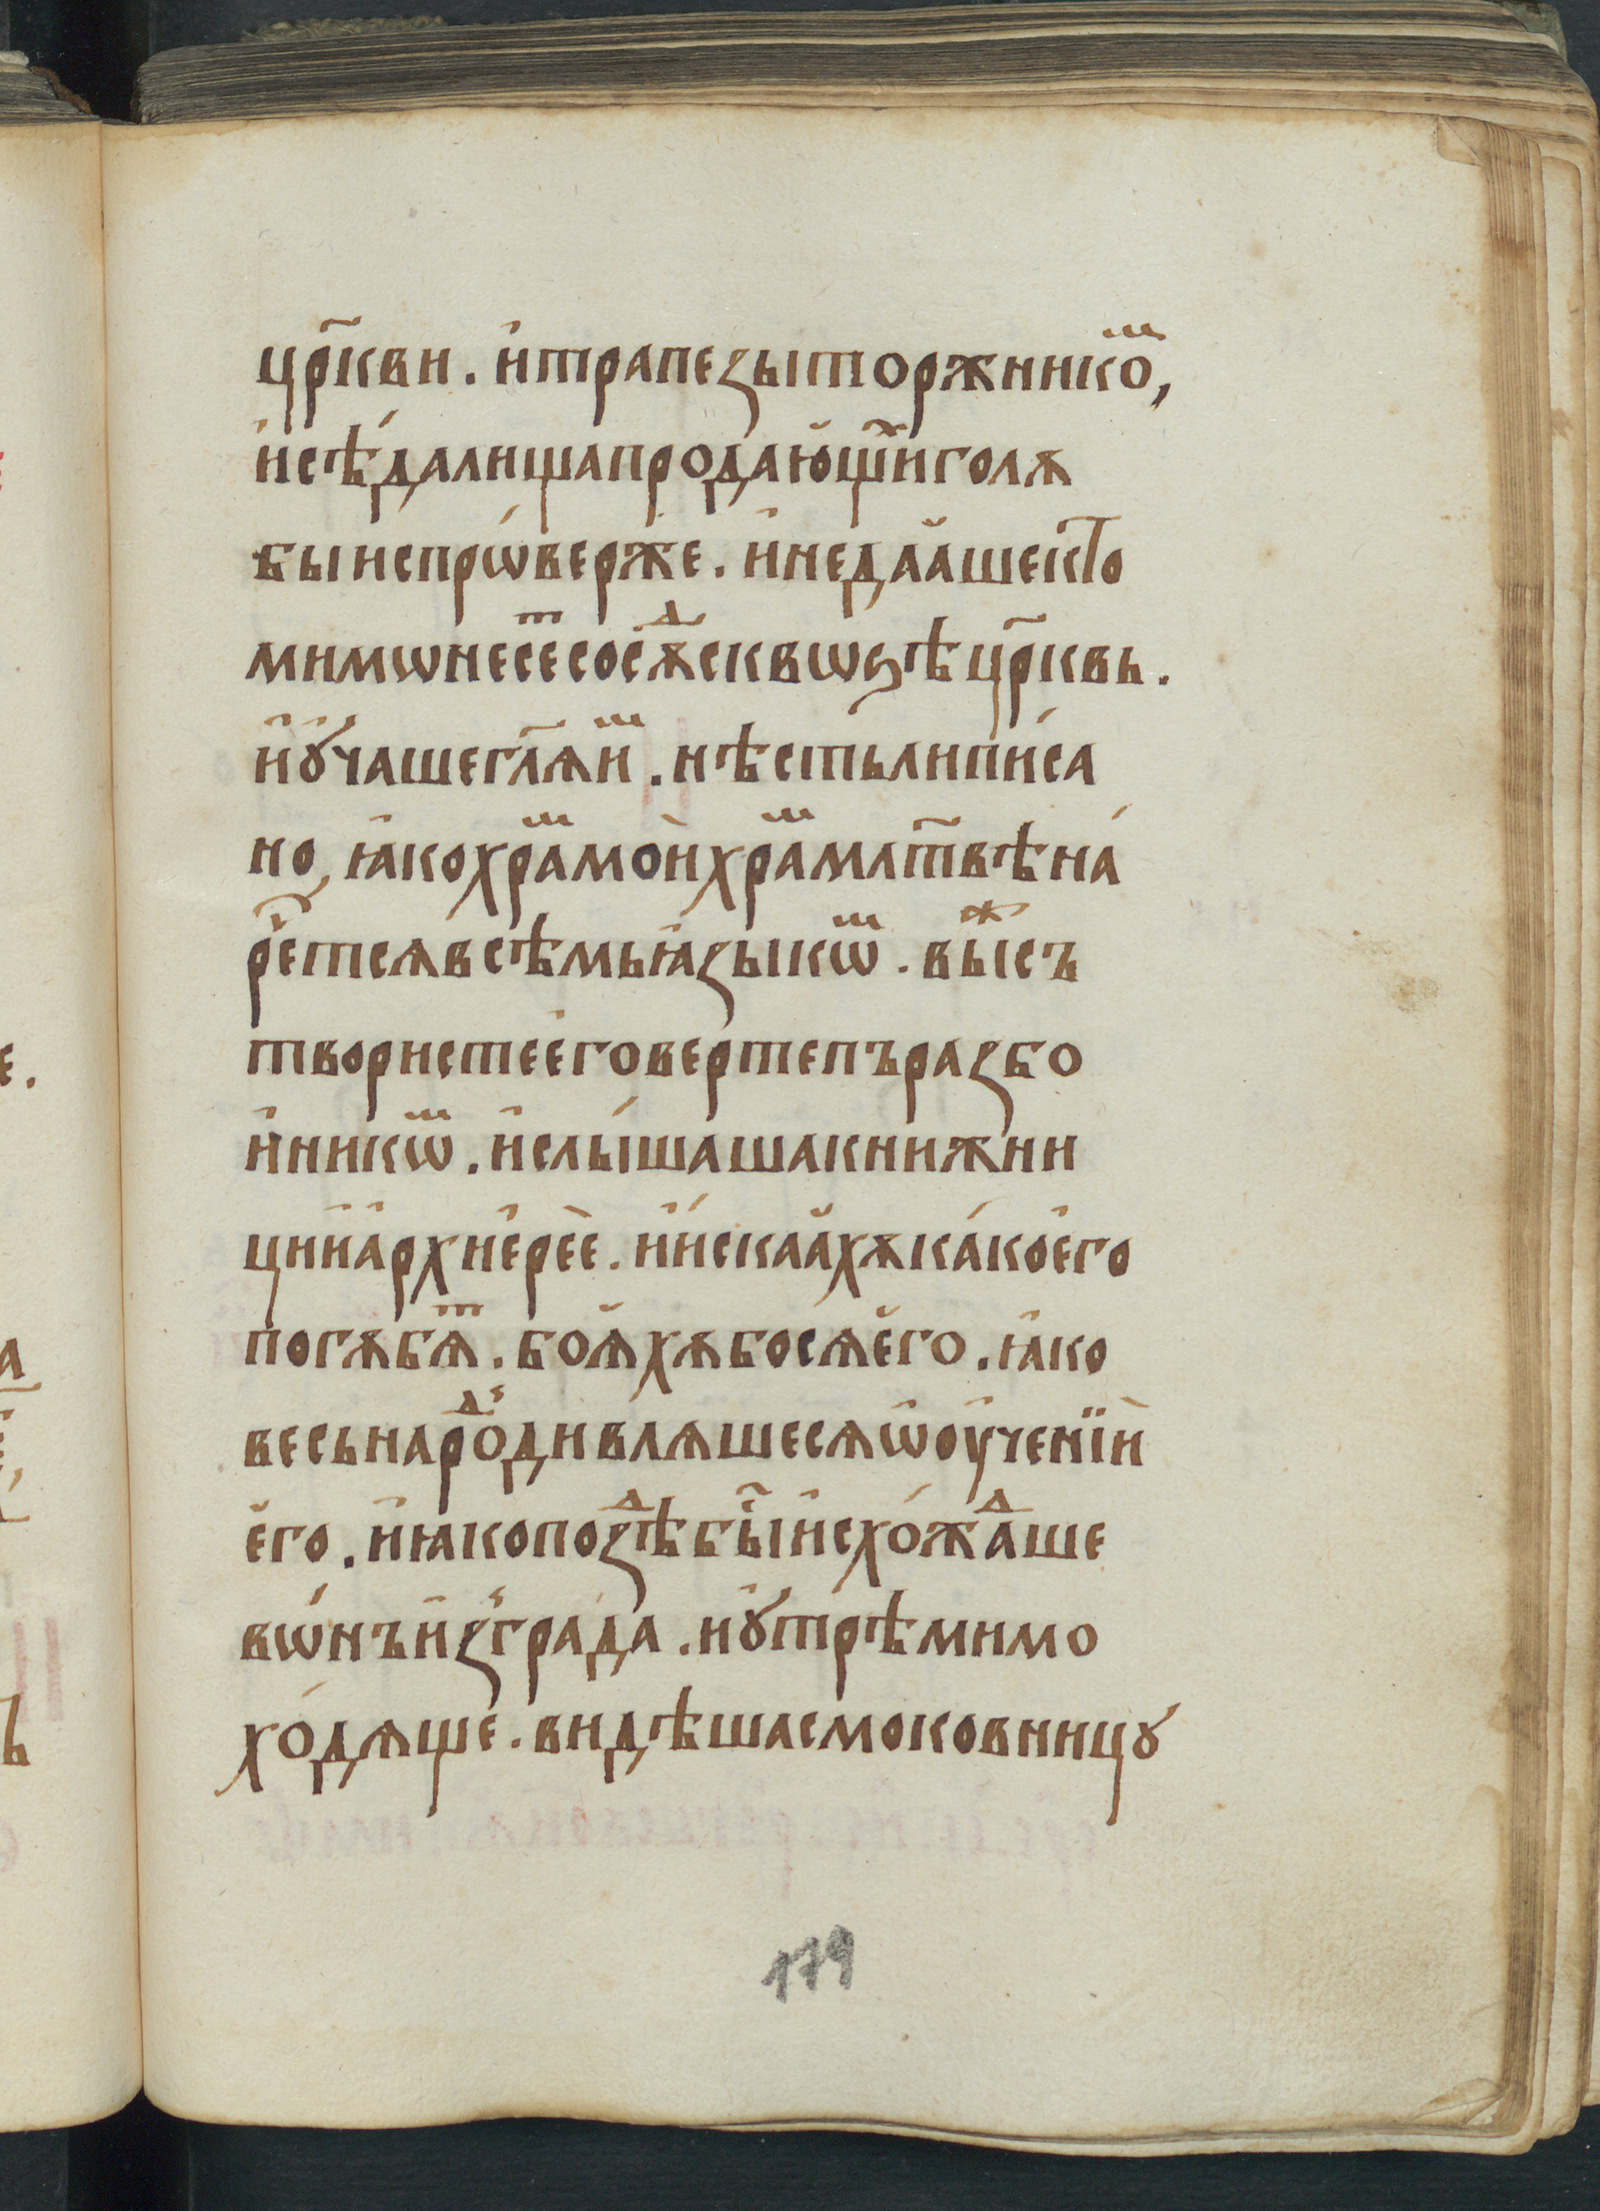 цр҃кви . и҆ трапезы торжникоⷨ,
и҆ сѣда́лища продаю҆щїиⷯ голѫ
бы испрѡ́верже . и҆ не даа҆ше кто
мимѡнесеⷭ҇ⷮ сосѫⷣ сквѡзѣ цр҃квь .
и҆ ᲂу҆чаше гл҃ѧ иⷨ . нѣсть ли пи́са
но, ꙗ҆ко храⷨ моѝ храⷨ млт҃вѣ на́
ре́тсѧ всѣмь ꙗ҆зыкѡⷨ . выⷤ съ
твористе е҆го вертепъ разбо
и҆никѡⷨ . и҆ слы́шаша книжни
ци и҆ а҆рхїереѐ . и҆ и҆скаа҆хѫ ка́ко е҆го
погѫбѧⷮ . боѧ҆хѫ бо сѧ є҆го . ꙗ҆ко
весь народⷣ дивлѧшесѧ ѡ҆ ᲂу҆ченїѝ
є҆го . и҆ ꙗ҆ко поⷥдѣ бы́ исхо́жⷣаше
вѡ́нъ и҆з̾гра́да . и ᲂу҆трѣ мимо
хо́дѧще . видѣша смоковницꙋ
179